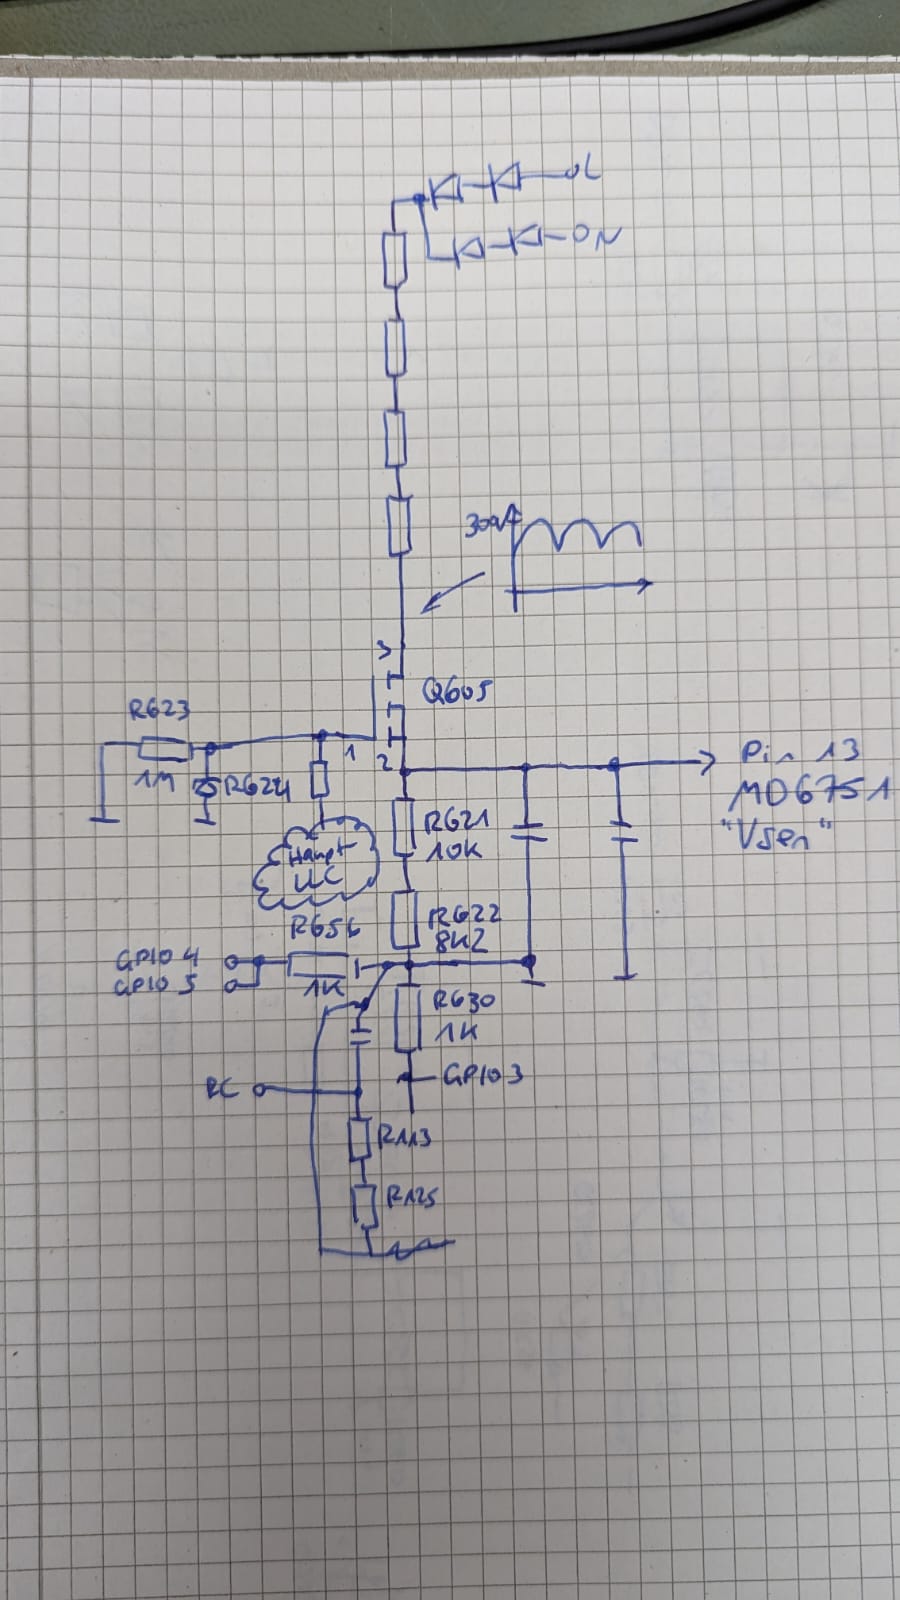 L
N
300V
3
Q605
R623
1
2
Pin 13
1M
R624
MD6751
"Vsen"
R621
10K
Haupt
µC
R622
8K2
R656
GPIO 4
GPIO 5
1K
R630
1K
GPIO 3
R113
R125